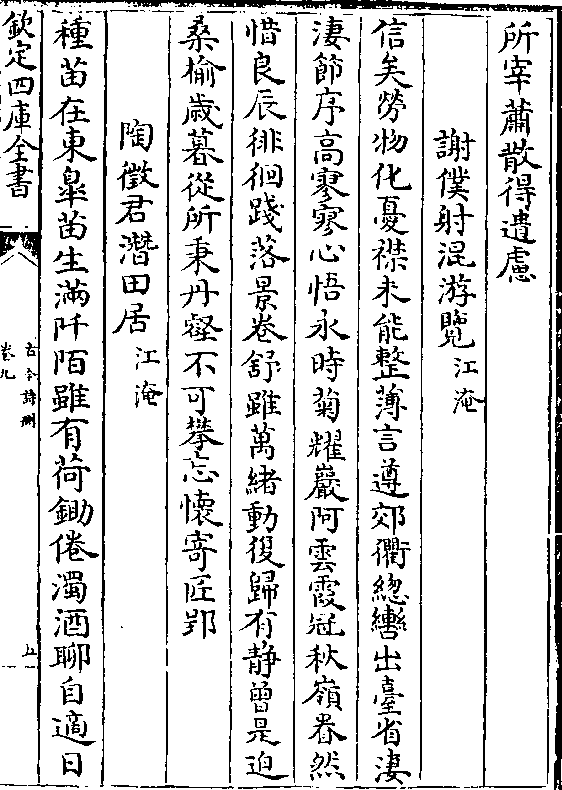 所宰蕭散得遺慮
謝僕射混游覽江淹
信矣勞物化憂襟未能整薄言遵郊衢緫轡出臺省淒
淒節序髙寥寥心悟永時菊耀巖阿雲霞冠秋嶺眷然
惜良辰徘徊踐落景卷舒雖萬緒動復歸有静曾是迫
桑榆歲暮從所秉丹壑不可攀忘懐寄匠郢
陶徵君潛田居江淹
種苗在東臯苗生滿阡陌雖有荷鋤倦濁酒聊自適日
欽定四庫全書
古今詩刪
卷九
五